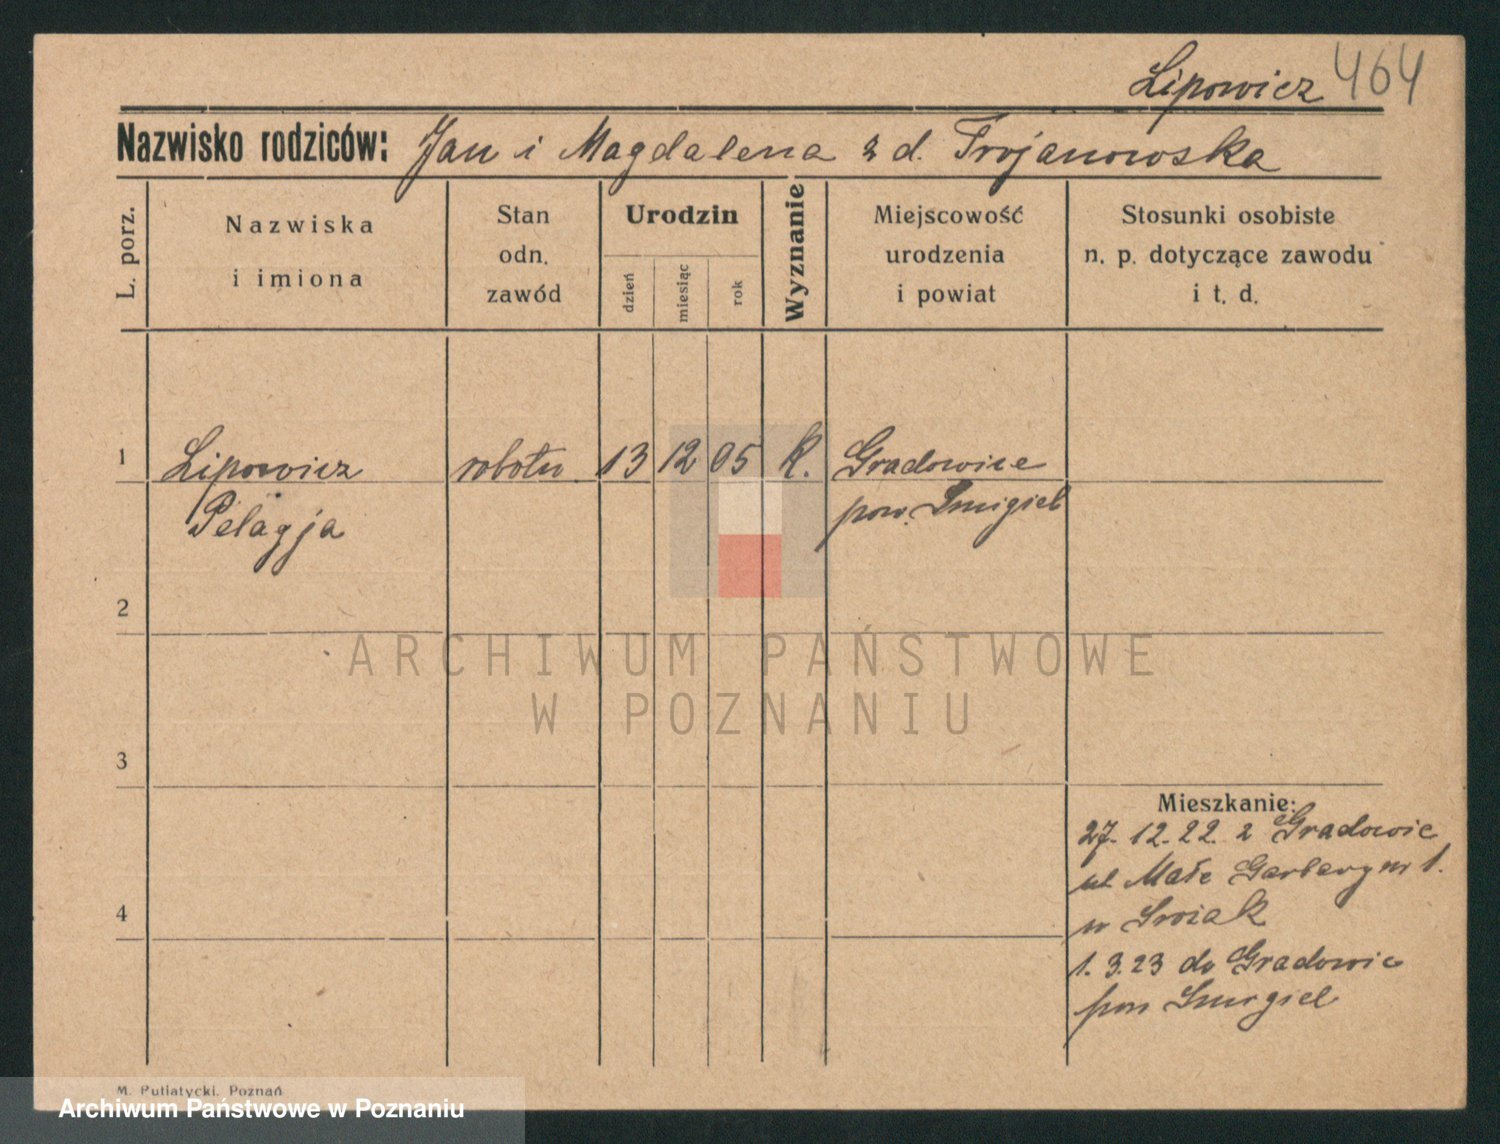 Lipowicz 464
Nazwisko rodziców: Jan i Magdalena z d. Trojanowska
L. porz.
Nazwiska
i imiona
Stan
odn.
zawód
Urodzin
dzień
miesiąc
rok
Wyznanie
Miejscowość
urodzenia
i powiat
Stosunki osobiste
n. p. dotyczące zawodu
i t. d.
1 Lipowicz robotn. 13 12 05 k. Gradowice
Pelagja pow. Smigiel
2
ARCHIWUM PAŃSTWOWE
W POZNANIU
3
Mieszkanie:
27. 12. 22. z Gradowic
ul Małe Garbary nr 1.
4
1. 3. 23 do Gradowic
pow Smigiel
M. Putiatycki, Poznań
Archiwum Państwowe w Poznaniu